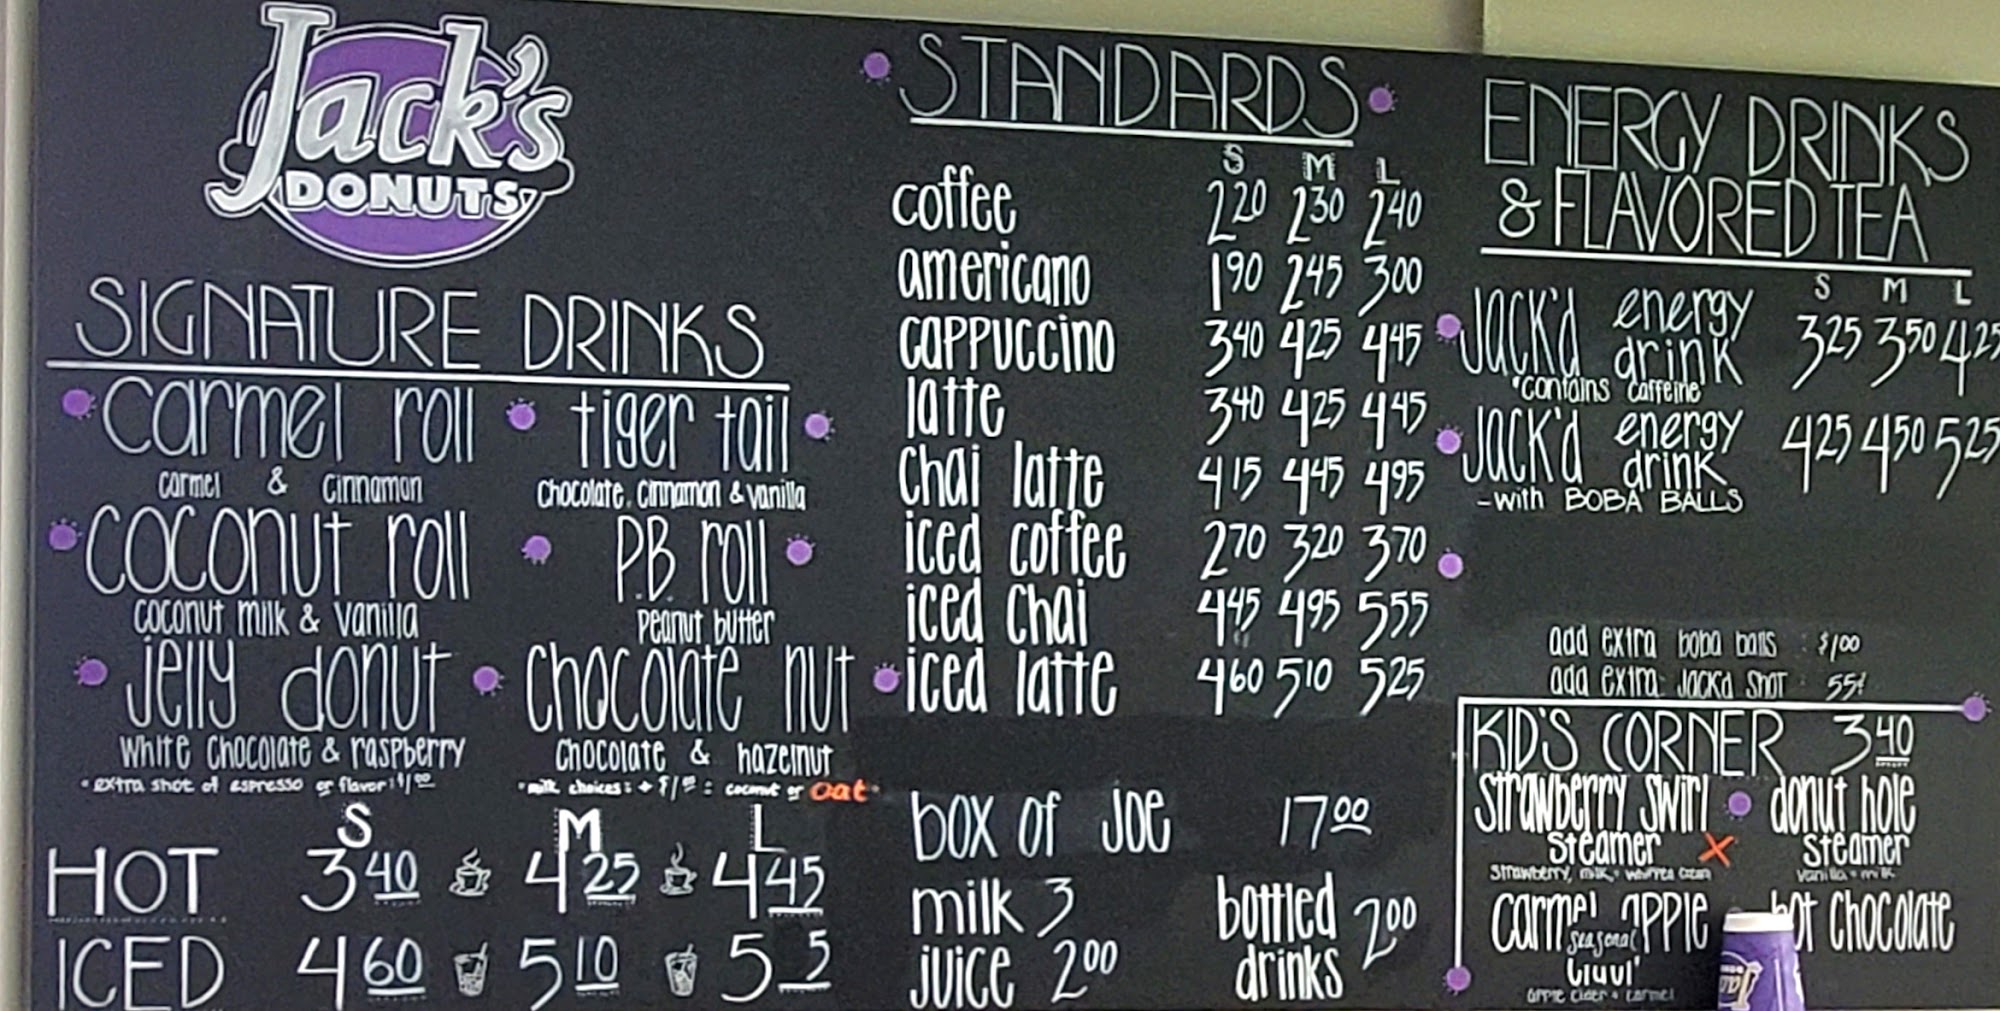 Jack's
DONUTS
SIGNATURE DRINKS
carmel roll
carmel & cinnamon
tiger tail
chocolate, cinnamon & vanilla
coconut roll
coconut milk & vanilla
P.B. roll
peanut butter
jelly donut
white chocolate & raspberry
chocolate nut
chocolate & hazelnut
* extra shot of espresso or flavor: $1.00
* milk choices: + $1.00 : coconut or oat
S M L
HOT 3.40 4.25 4.45
ICED 4.60 5.10 5 5
STANDARDS
S M L
coffee 2.20 2.30 2.40
americano 1.90 2.45 3.00
cappuccino 3.40 4.25 4.45
latte 3.40 4.25 4.45
chai latte 4.15 4.45 4.95
iced coffee 2.70 3.20 3.70
iced chai 4.45 4.95 5.55
iced latte 4.60 5.10 5.25
box of joe 17.00
milk 3
juice 2.00
bottled drinks 2.00
ENERGY DRINKS
& FLAVORED TEA
S M L
Jack'd energy drink 3.25 3.50 4.25
*contains caffeine*
Jack'd energy drink 4.25 4.50 5.25
-with BOBA BALLS
add extra boba balls $1.00
add extra Jack'd shot 55¢
KID'S CORNER 3.40
strawberry swirl
steamer
strawberry, milk, + whipped cream
donut hole
steamer
vanilla + milk
carmel apple
seasonal
apple cider + carmel
hot chocolate